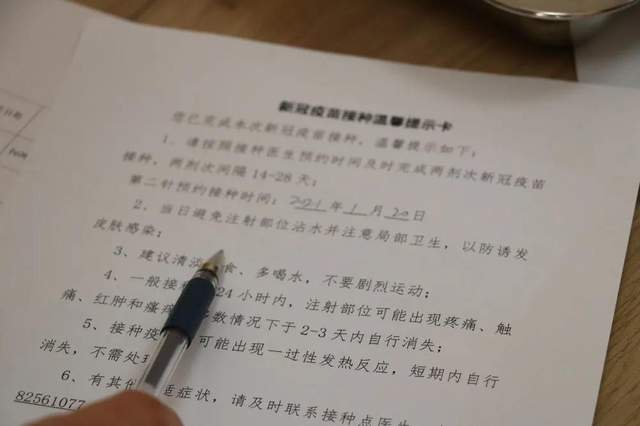 新冠疫苗接种温馨提示卡
您已完成本次新冠疫苗接种，温馨提示如下：
1、请按照接种医生预约时间及时完成两剂次新冠疫苗
接种，两剂次间隔 14-28 天；
第二针预约接种时间：2021 年 1 月 20 日
2、当日避免注射部位沾水并注意局部卫生，以防诱发
皮肤感染；
3、建议清淡食、多喝水，不要剧烈运动；
4、一般接 24 小时内，注射部位可能出现疼痛、触
痛、红肿和瘙 数情况下于 2-3 天内自行消失；
5、接种疫 可能出现一过性发热反应，短期内自行
消失，不需处
6、有其他 适症状，请及时联系接种点医生
82561077